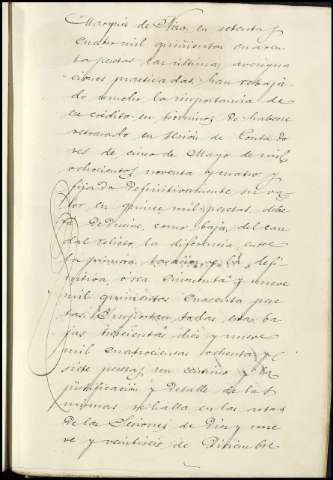 Marqués de Nisa, en setenta y
cuatro mil quinientas cuaren
ta pesetas, las últimas averigua
ciones practicadas, han rebaja
do mucho la importancia de
ese crédito en términos de haberse
retasado en sesión de Conta do
res de cinco de Mayo de mil
ochocientos noventa y cuatro y
fijado definitivamente su va
lor en quince mil pesetas, debe
rá deducirse, como baja, del cau
dal relicto, la diferencia entre
la primera tasación y la defi
nitiva, ó sea cincuenta y nueve
mil quinientas cuarenta pese
tas. Importan todas estas ba
jas trescientas diez y nueve
mil cuatrocientas ochenta y
siete pesetas un céntimo y la
justificación y detalle de las
mismas se halla en las actas
de las sesiones de diez y nue
ve y veintiseis de Diciembre